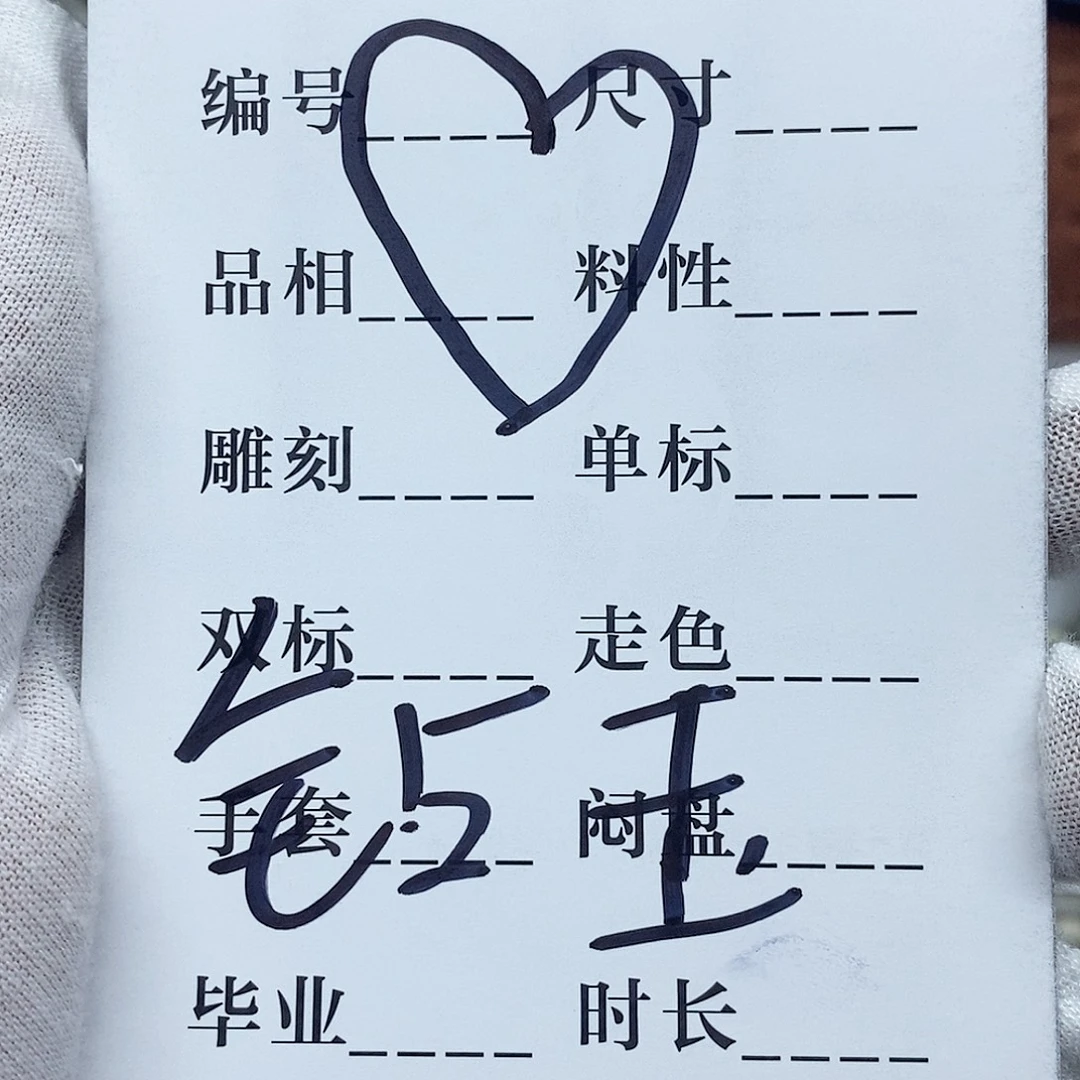 编号____ 尺寸____
品相____ 料性____
雕刻____ 单标____
双标____ 走色____
手套____ 闷盘____
毕业____ 时长____
钻玉